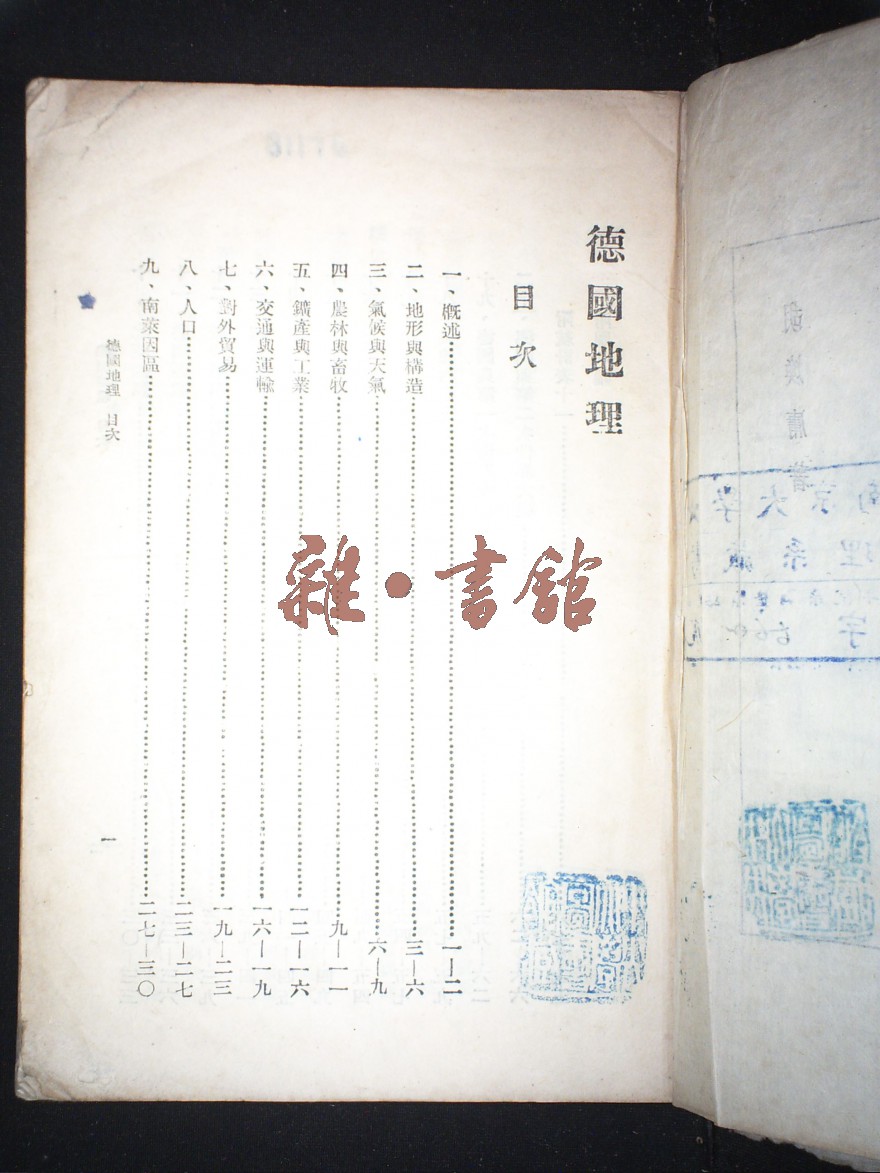 德國地理
目次
一、概述……一—二
二、地形與構造……三—六
三、氣候與天氣……六—九
四、農林與畜牧……九—一一
五、鑛產與工業……一二—一六
六、交通與運輸……一六—一九
七、對外貿易……一九—二三
八、人口……二三—二七
九、南萊因區……二七—三〇
德國地理 目次
一
雜·書館